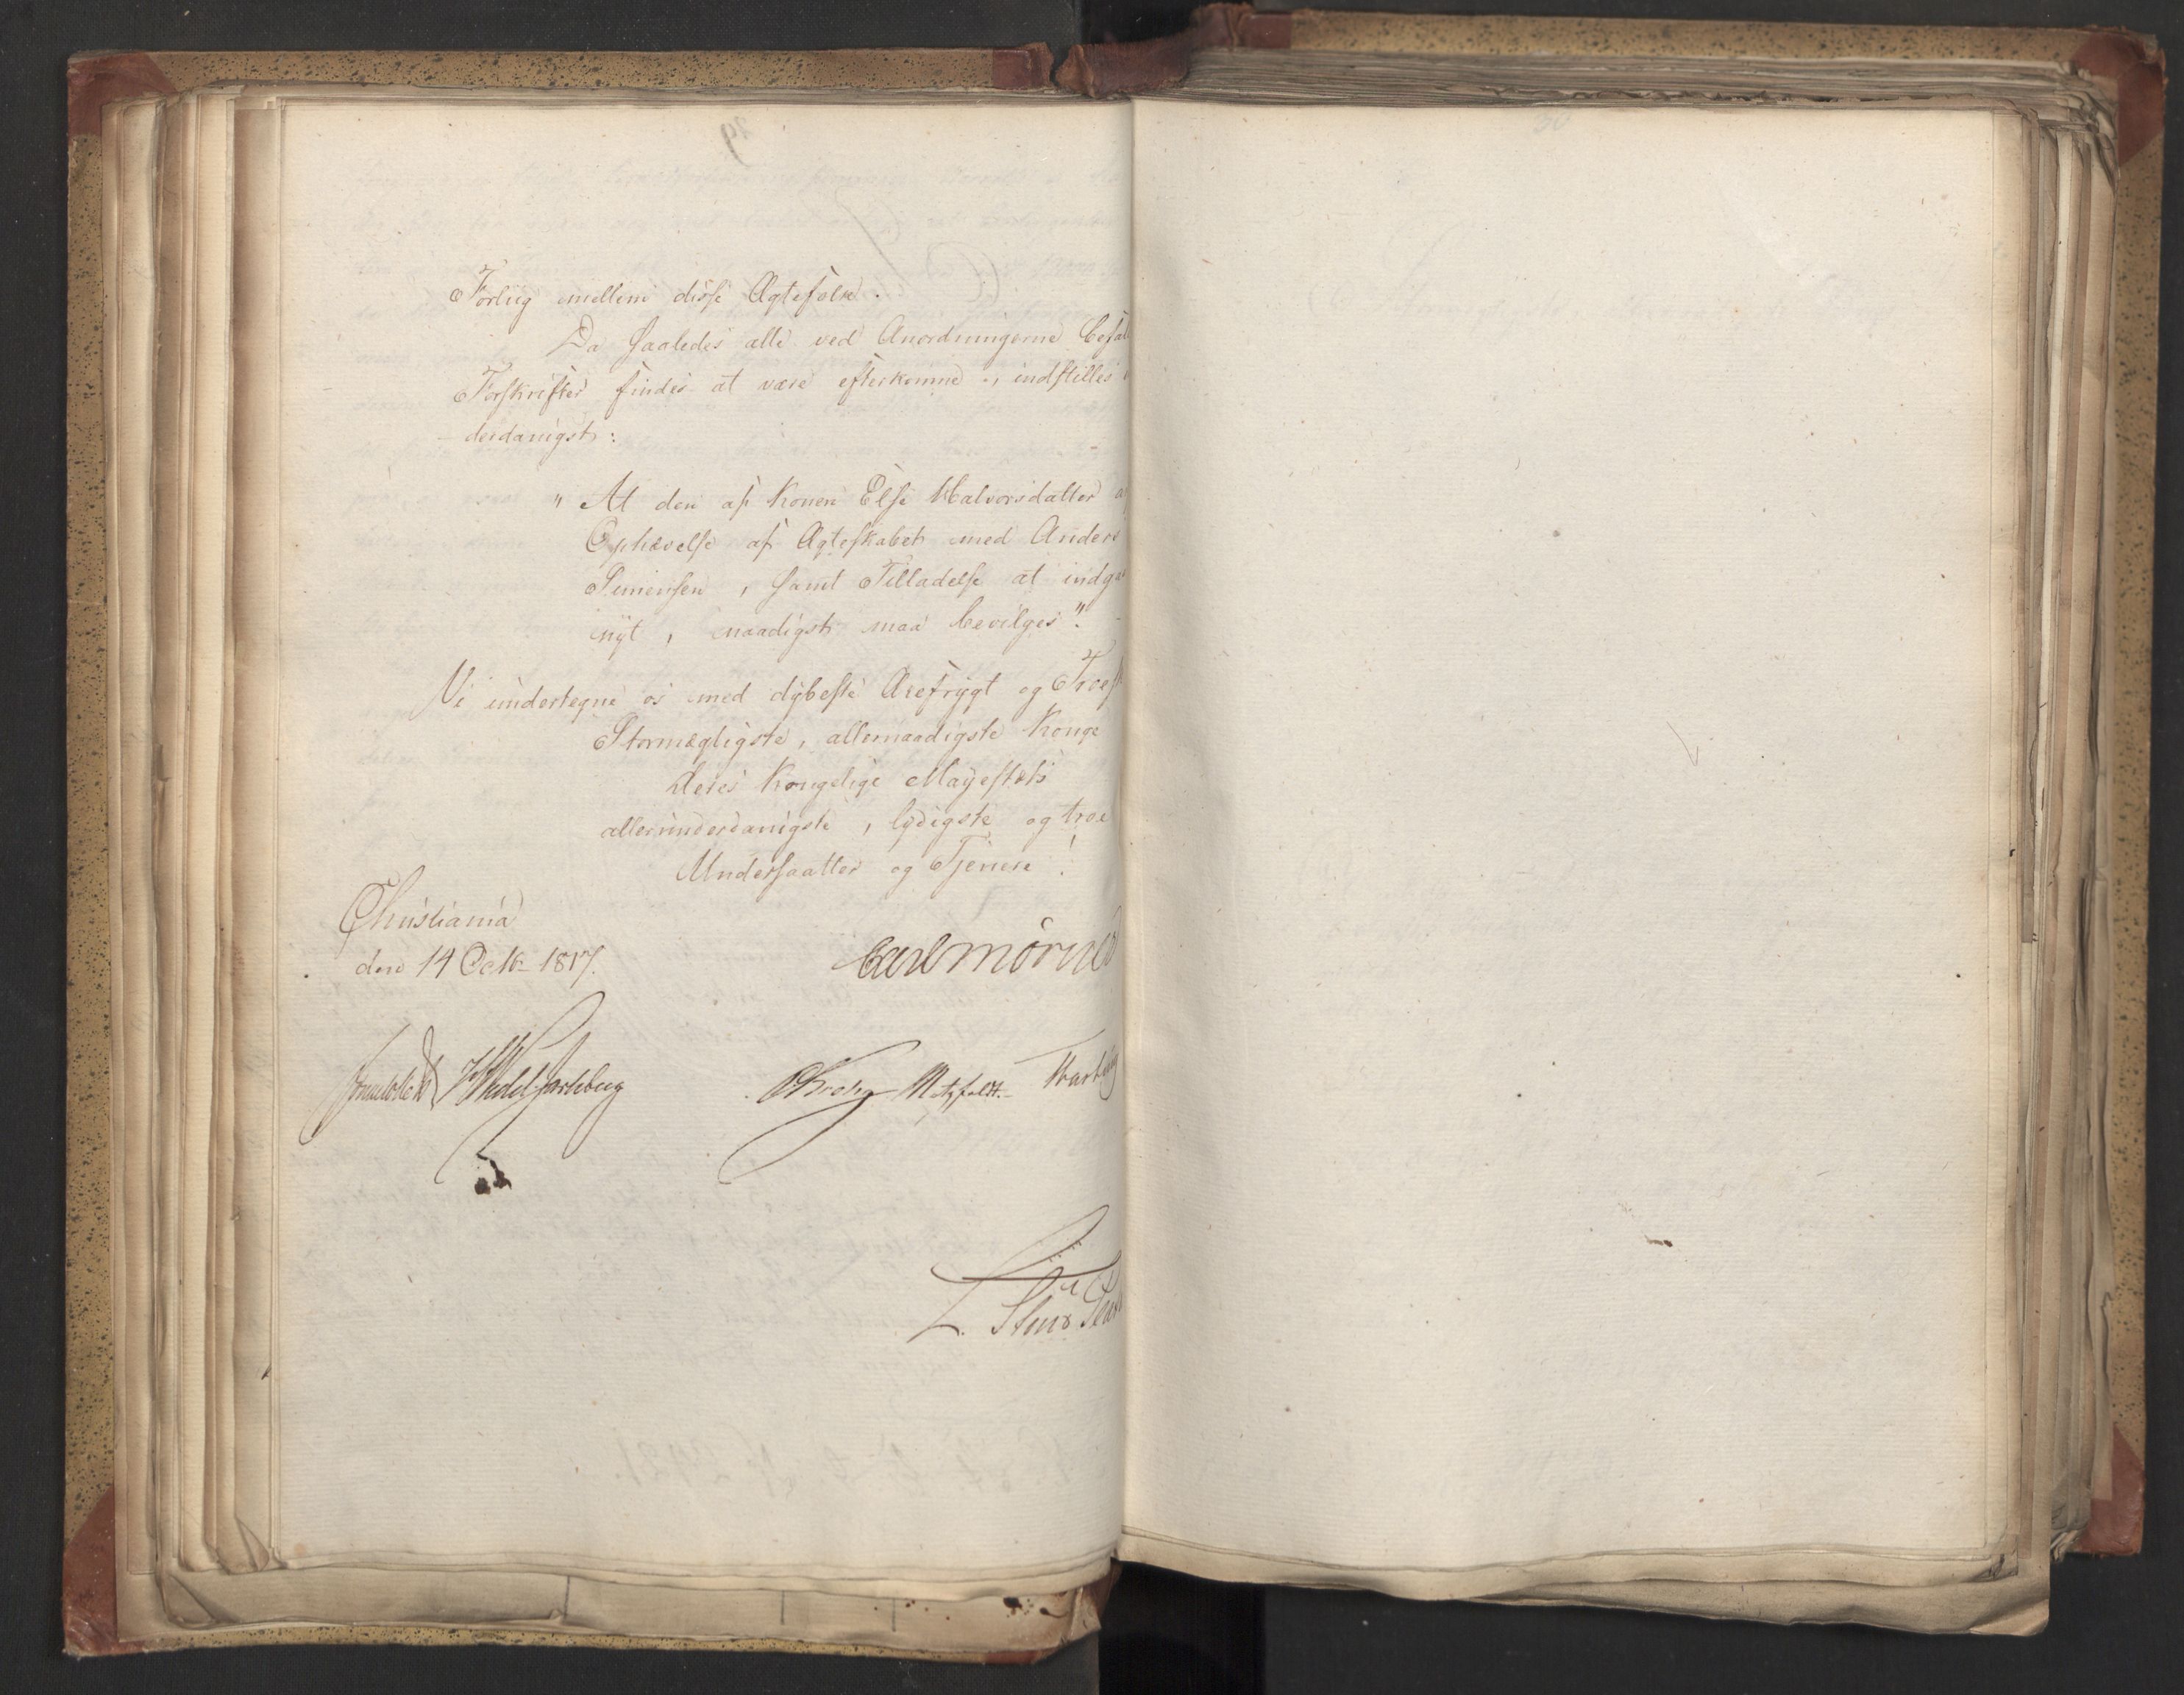 Forliig mellem disse Ægtefolk.
Da saaledes alle ved Anordningerne befal
Forskrifter findes at være efterkomne, indstilles
derdanigst:
" At den af Konen Else Halvorsdatter
Ophævelse af Ægteskabet med Anders
Simensen, samt Tilladelse at indgaa
nÿt, naadigst maa bevilges".
Vi undertegne os med dÿbeste Ærefrÿgt og Troes
Stormægtigste, allernaadigste Konge
Deres Kongelige Mayestæts
allerunderdanigste, lÿdigste og troe
Undersaatter og Tjenere!
Christiania
den 14 Octbr 1817.
Carl Mörner
Sommerhielm HWedel Jarlsberg
CKrohg Motzfeldt.
L. Stuo Plat